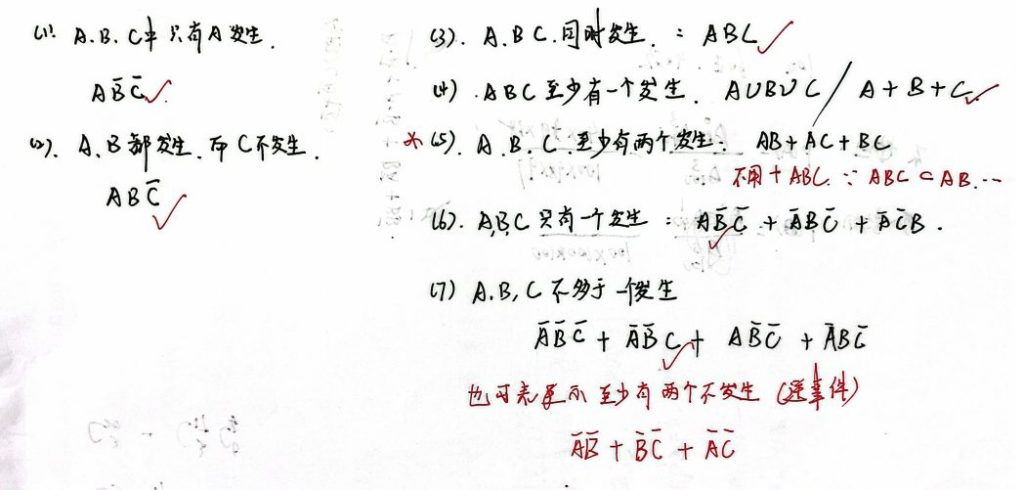 (1). A.B.C中只有A发生.
AB̅C̅✓.
(2). A.B都发生.而C不发生.
ABC̅✓
(3). A.B C.同时发生. : ABC✓
(4). ABC至少有一个发生. A∪B∪C / A+B+C✓
*(5). A.B.C 至少有两个发生: AB+AC+BC
不用+ABC. ∵ ABC⊂AB.…
(6). A,B,C 只有一个发生: AB̅C̅ + A̅BC̅ + A̅C̅B.
(7) A.B,C不多于一个发生
A̅B̅C̅ + A̅B̅C✓+ AB̅C̅ + A̅BC̅
也可表示 至少有两个不发生 (逆事件)
A̅B̅ + B̅C̅ + A̅C̅